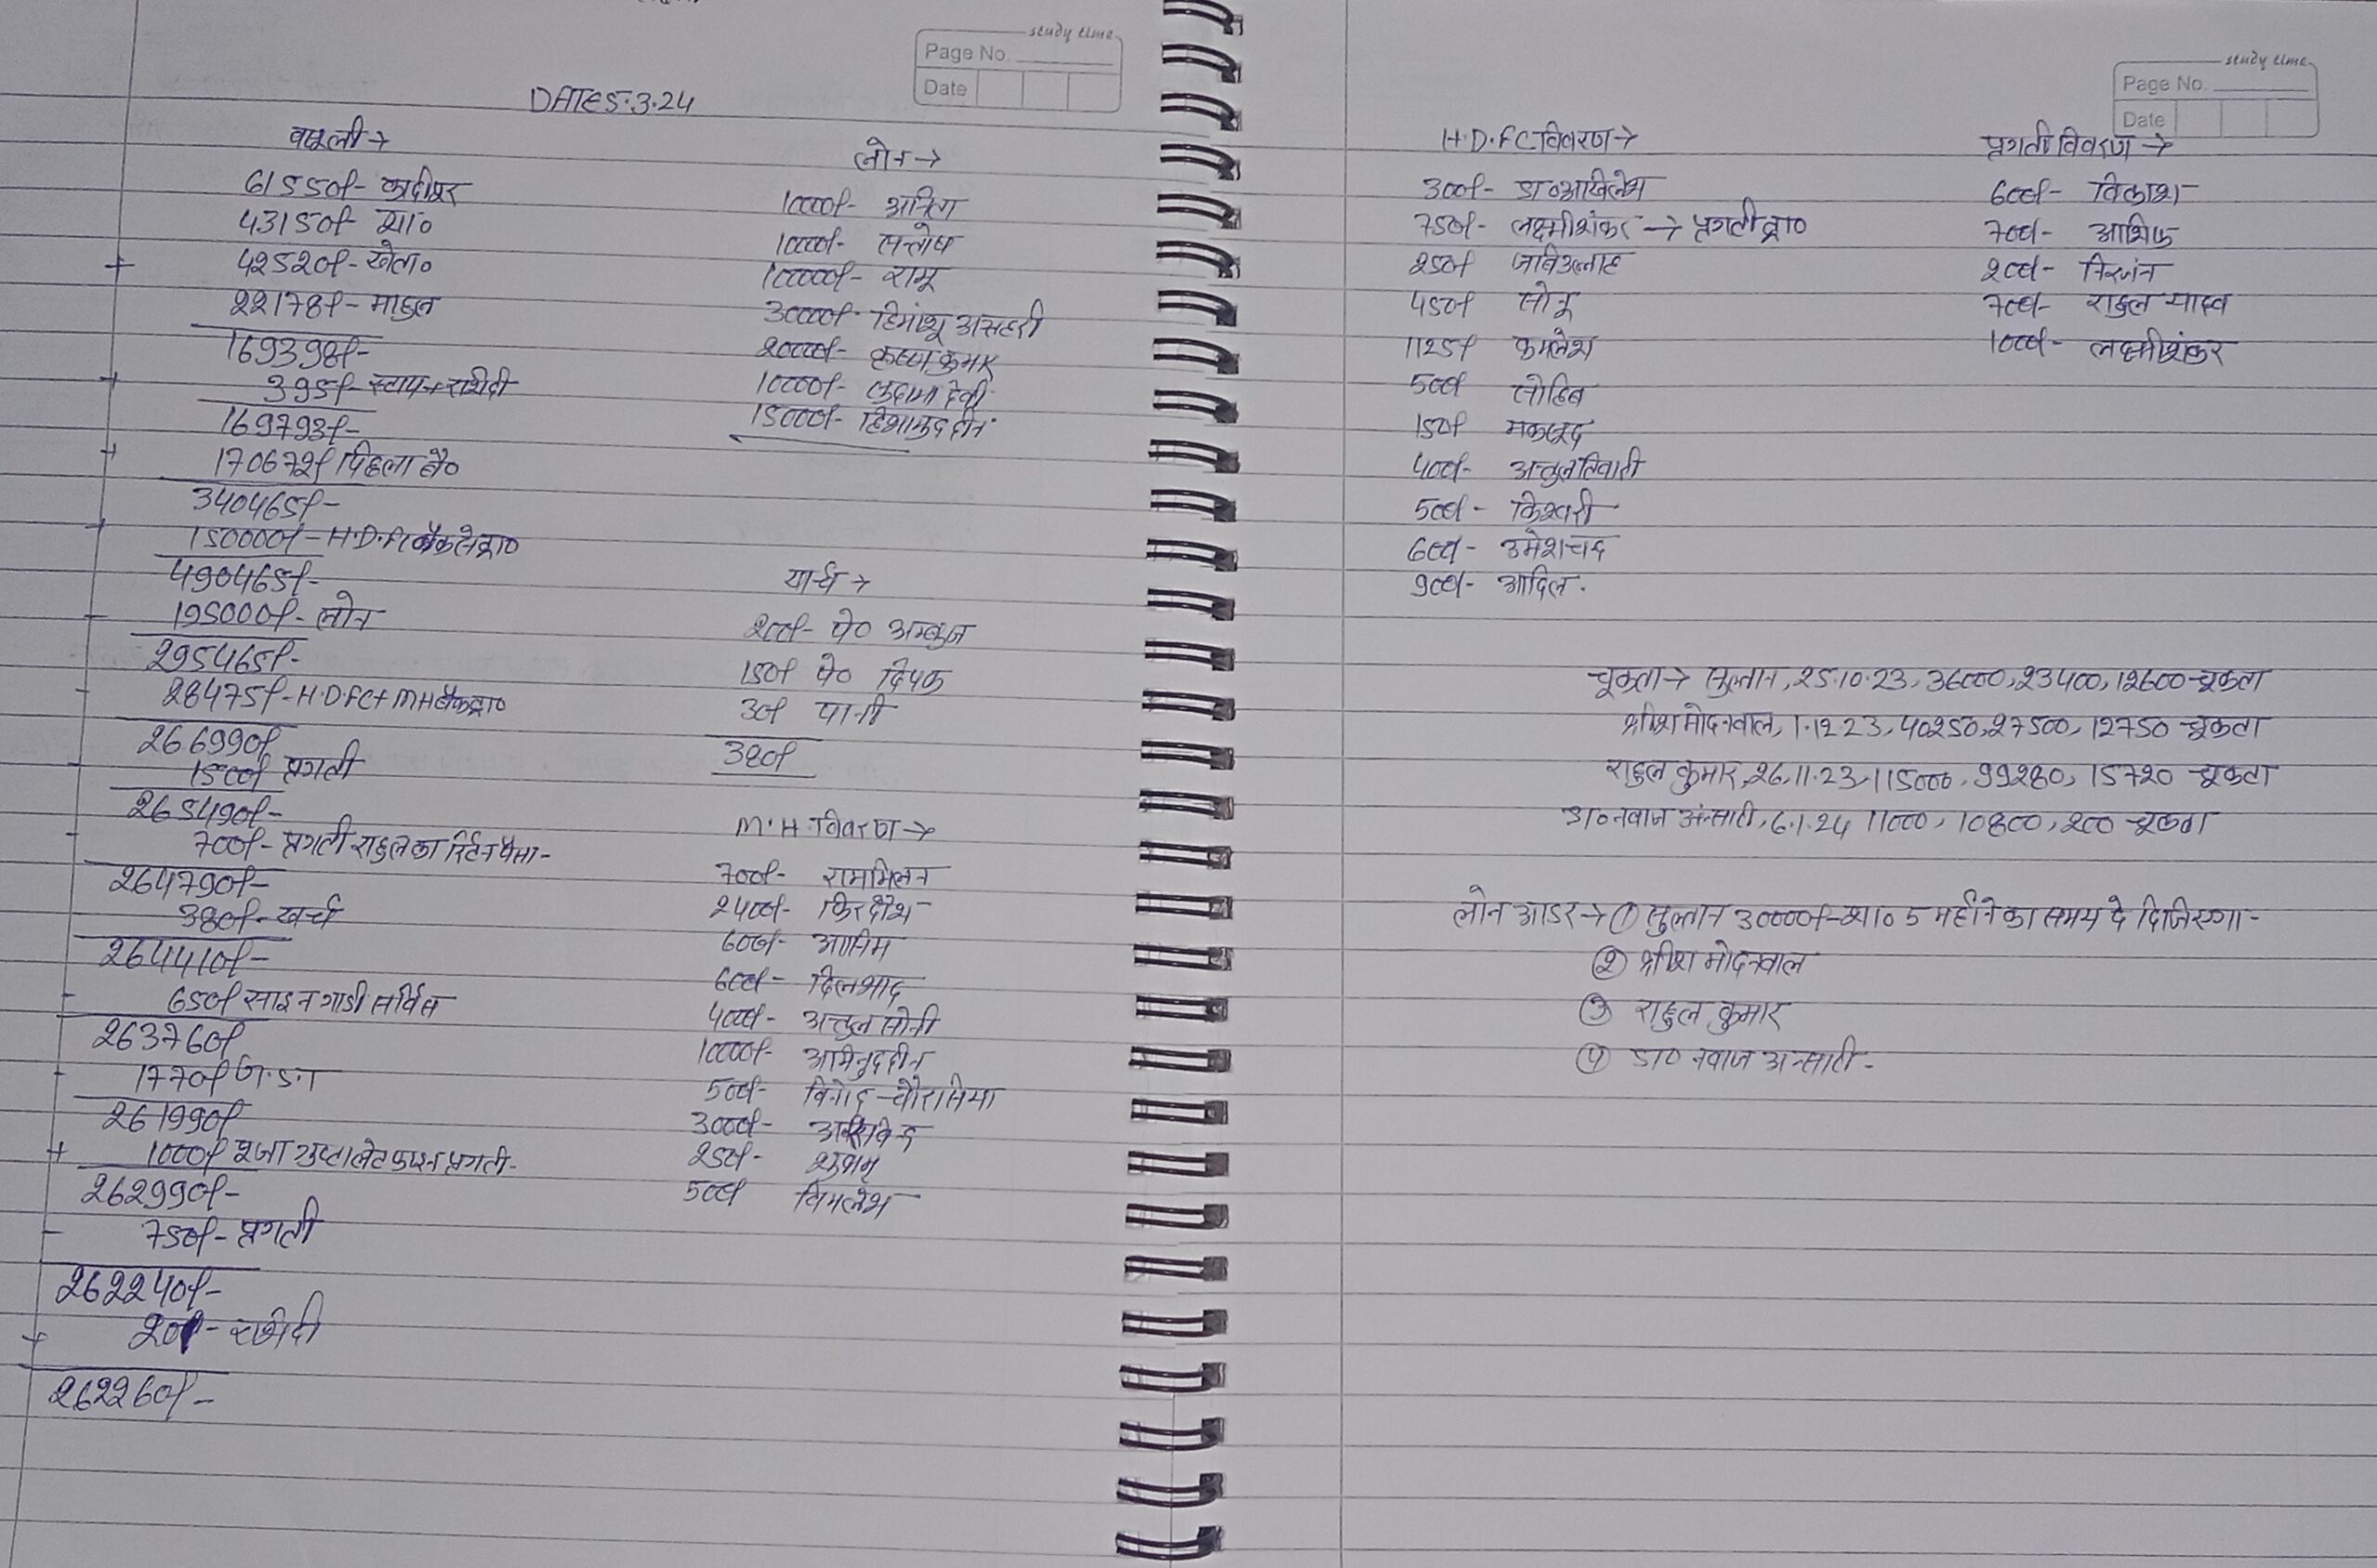 study time
Page No.
Date
DATE 5.3.24
वसूली →
61550/- कादीपुर
43150/- शा०
42520/- खेता०
+ 22178/- माहुल
169398/-
+ 395/- स्टाम्प + रसीदी
169793/-
+ 170672/- पिछला बै०
340465/-
+ 150000/- H.D.FC बैंक से द्वा०
490465/-
- 195000/- लोन
295465/-
- 28475/- H.D.FC + M H बैंक द्वा०
266990/-
- 1500/- प्रगती
265490/-
- 700/- प्रगती राहुल का रिर्टन पैसा -
264790/-
380/- खर्च
264410/-
- 650/- साइन गाडी सर्विस
263760/-
- 1770/- G.S.T
261990/-
+ 1000/- पूजा गुप्ता लेट फाइन प्रगती -
262990/-
- 750/- प्रगती
262240/-
+ 20/- रसीदी
262260/-
लोन →
10000/- अनिता
10000/- सन्तोष
100000/- रामू
30000/- हिमांशू अग्रहरी
20000/- कृष्ण कुमार
10000/- देवी
15000/- हिशामुद्दीन
खार्च →
200/- पे० अम्बुज
150/- पे० दिपक
30/- पानी
380/-
M.H. विवरण →
700/- राममिलन
2400/- फिरदौश
600/- आसिम
600/- दिलशाद
4000/- अतुल सोनी
10000/- आमिनुद्दीन
500/- विनोद चौरासिया
3000/- अरविन्द
250/- शुभम्
500/- विमलेश
study time
Page No.
Date
H.D.FC. विवरण →
300/- डा० अखिलेश
750/- लक्ष्मीशंकर → प्रगती द्वा०
250/- जबिउल्लाह
450/- सोनू
1125/- कमलेश
500/- सोहिब
150/- मकसूद
400/- अतुल तिवारी
500/- किश्वरी
600/- उमेशचंद
900/- आदिल.
प्रगती विवरण →
600/- विकाश
700/- आशिक
200/- निरजंन
700/- राहुल यादव
1000/- लक्ष्मीशंकर
चूकता → सुल्तान, 25.10.23, 36000, 23400, 12600 चूकता
श्रीश मोदनवाल, 1.12.23, 40250, 27500, 12750 चूकता
राहुल कुमार, 26.11.23, 115000, 99280, 15720 चूकता
डा० नवाज अंन्सारी, 6.1.24 11000, 10800, 200 चूकता
लोन आडर → ① सुल्तान 30000/- शा० 5 महीने का समय दे दिजिएगा -
② श्रीश मोदनवाल
③ राहुल कुमार
④ डा० नवाज अन्सारी -